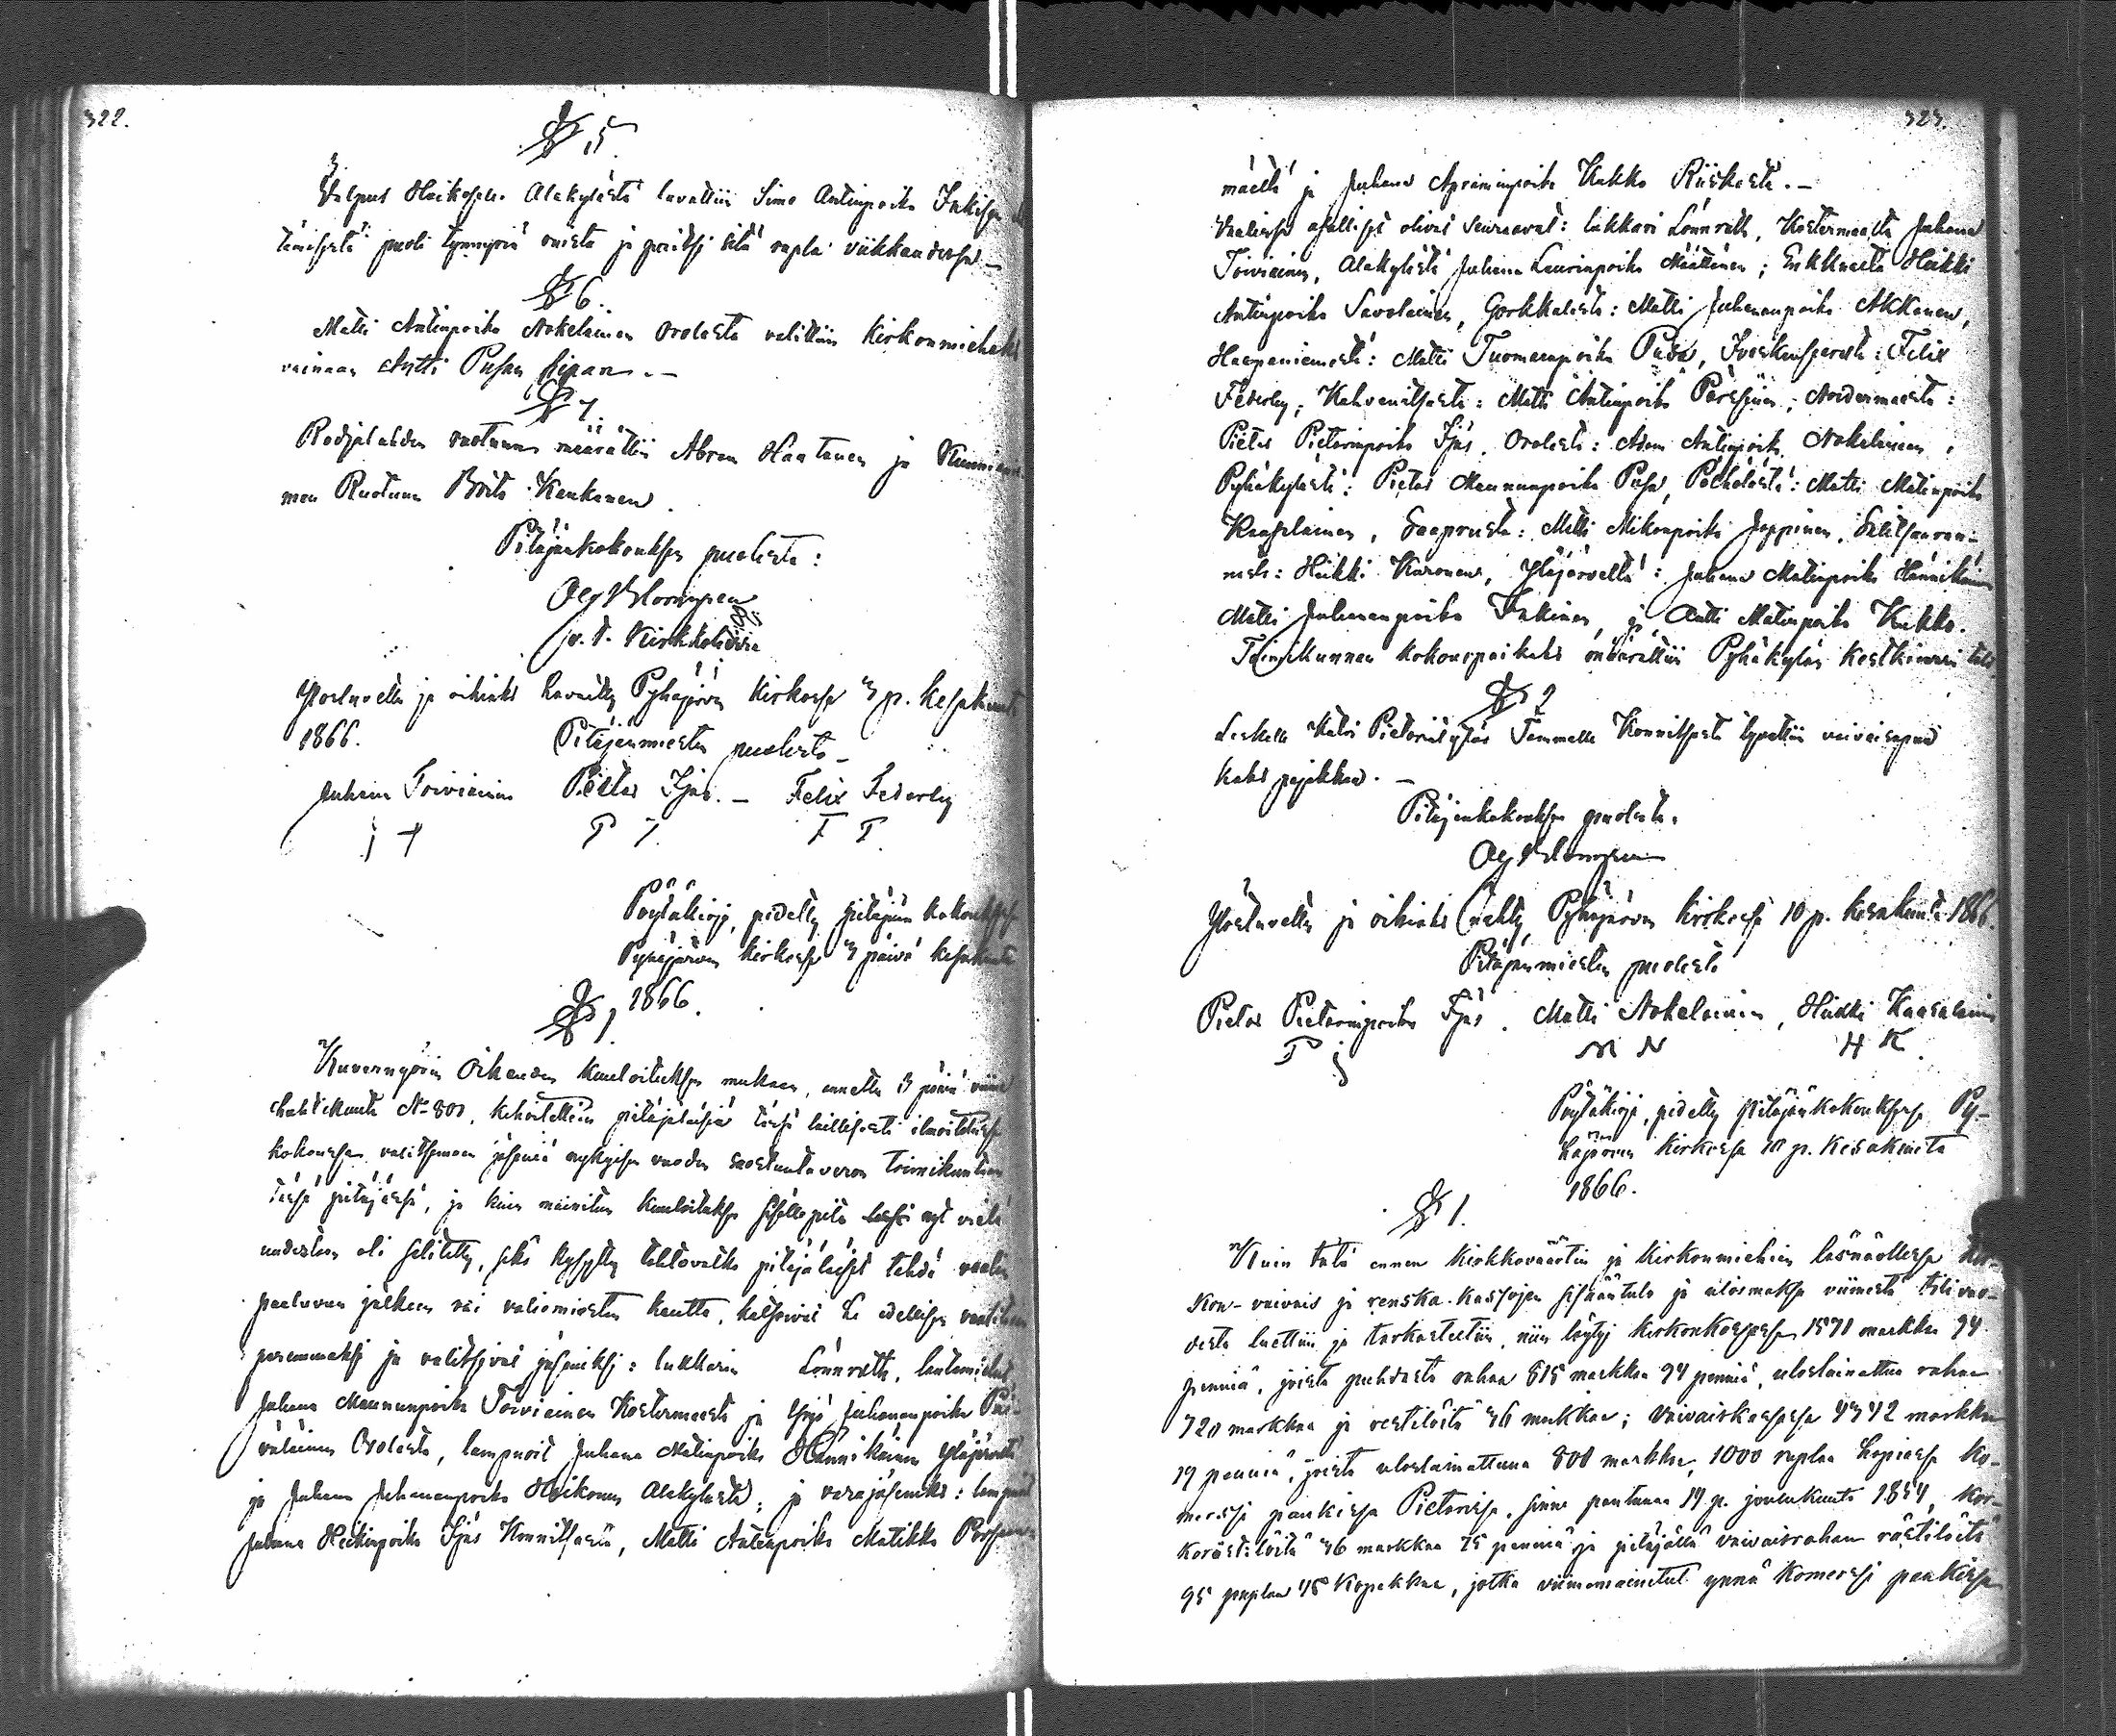 322.
§ 5
Heikosen Alakylästä luvattiin Simo Antinpoika Inkisen
puoli tynnyriä ja sitä rupla viikkaudessa –
§ 6.
Matti Antinpoika Nokelainen Orolasta valittiin Kirkonmieheksi
vainaan Antti Pusan sijaan. –
§ 7.
ruotuun määrättiin Abram Haatanen ja
men Ruotuun Kaukanen.
Pitäjänkokouksen puolesta:
v. t. Kirkkoherra
Ylösluvettu ja oikiaks havaittu Pyhäjärven Kirkossa 3 p. Kesäkuuta
1866.
Pitäjänmiesten puolesta –
Juhana Toiviainen Pietar Ijäs. – Felix Federley
J T P I. F F.
Pöytäkirja, pidetty pitäjän kokouksessa
Pyhäjärven kirkossa 3 päivä kesäkuuta
1866.
§ 1.
Kuvernyörin Oikeuden kuuloituksen mukaan, annettu 3 päivä viime
huhtikuuta No 801, kehoitettiin pitäjäläisiä tässä laillisesti ilmoitetussa
kokouksessa valitsemaan jäseniä nykyisen vuoden suostuntaveron toimikuntaan
tässä pitäjässä, ja kuin mainitun kuuloituksen sisällepito nyt vielä
uudestaan oli selitetty, sekä kysytty tahtovatko pitäjäläiset tehdä vaalin
pääluvun jälkeen eli valiomiesten kautta, katsoivat he edellisen vaalitavan
paremmaksi ja valitsivat jäseniksi: lukkarin Lönnroth, lautamiehet
Juhana Maununpoika Toiviainen Kostermaasta ja Yrjö Juhananpoika Päi-
väläinen Orolasta, lampuoit Juhana Matinpoika Hännikäinen Yläjärveltä
ja Juhana Juhananpoika Heikonen Alakylästä; ja varajäseniks: lampuoit
Juhana Heikinpoika Ijäs Konnitsasta, Matti Antinpoika Matikka
323.
mäeltä ja Juhana Apraminpoika Kukko Riiskasta. –
Vaalissa osalliset olivat seuraavat: lukkari Lönnroth, Kostermaalta Juhana
Toiviainen, Alakylästä Juhana Laurinpoika Määttänen; Enkkuasta Heikki
Antinpoika Savolainen, Gorkkalasta: Matti Juhananpoika Akkanen,
Haapaniemestä: Matti Tuomaanpoika Pusa, Ivaskansaaresta: Felix
Federley; Kahvenitsasta: Matti Antinpoika Pärssinen; Noidermaasta:
Pietar Pietarinpoika Ijäs. Orolasta: Adam Antinpoika Nokelainen,
Pyhäkylästä: Pietar Maununpoika Pusa, Pölhölästä: Matti Matinpoika
Kaasalainen, Saaprusta: Matti Mikonpoika Joppinen, Salitsanran-
nasta: Heikki Kuronen, Yläjärveltä: Juhana Matinpoika Hännikäinen
Matti Juhananpoika Inkinen, ja Antti Matinpoika Kukko.
Toimikunnan kokouspaikaks määrättiin Pyhäkylän Kestkievari talo
§ 2
Leskelle Katri Pietarintytär Tammelle Konnitsasta lyöttiin vaivaisapua
kaks pajakkaa. –
Pitäjänkokouksen puolesta.
Ylösluvettu ja oikiaks nähty, Pyhäjärven kirkossa 10 p. kesäkuuta 1866.
Pitäjänmiesten puolesta
Pietar Pietarinpoika Ijäs. Matti Nokelainen, Heikki Kaasalainen
P I M N H K.
Pöytäkirja, pidetty pitäjänkokouksessa Py-
häjärven kirkossa 10 p. Kesäkuuta
1866.
§ 1.
Kuin tätä ennen Kirkkoväärtin ja Kirkonmiehien läsnäollessa Kir-
kon-vaivais ja renska-kassojen sisääntulo ja ulosmaksu viimestä tili vuo-
desta luettiin ja tarkasteltiin, niin löytyi kirkonkassassa 1571 markkaa 94
penniä, joista puhdasta rahaa 815 markkaa 94 penniä, uloslainattua rahaa
720 markkaa ja restilöitä 36 markkaa; Vaivaiskassassa 4342 markkaa
19 penniä, joista uloslainattuna 800 markkaa, 1000 ruplaa hopiassa Ko-
merssi pankissa Pietarissa, sinne pantuna 14 p. joulukuuta 1854, Kor-
korästilöitä 36 markkaa 75 penniä ja pitäjällä vaivaisrahan rästilöitä
95 ruplaa 48 kopekkaa, jotka viimemainitut ynnä Komerssi pankissa